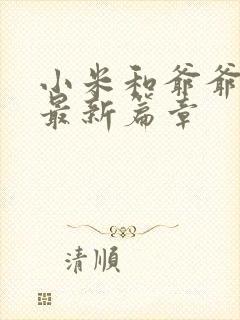 小米和爷爷
最新篇章
清順